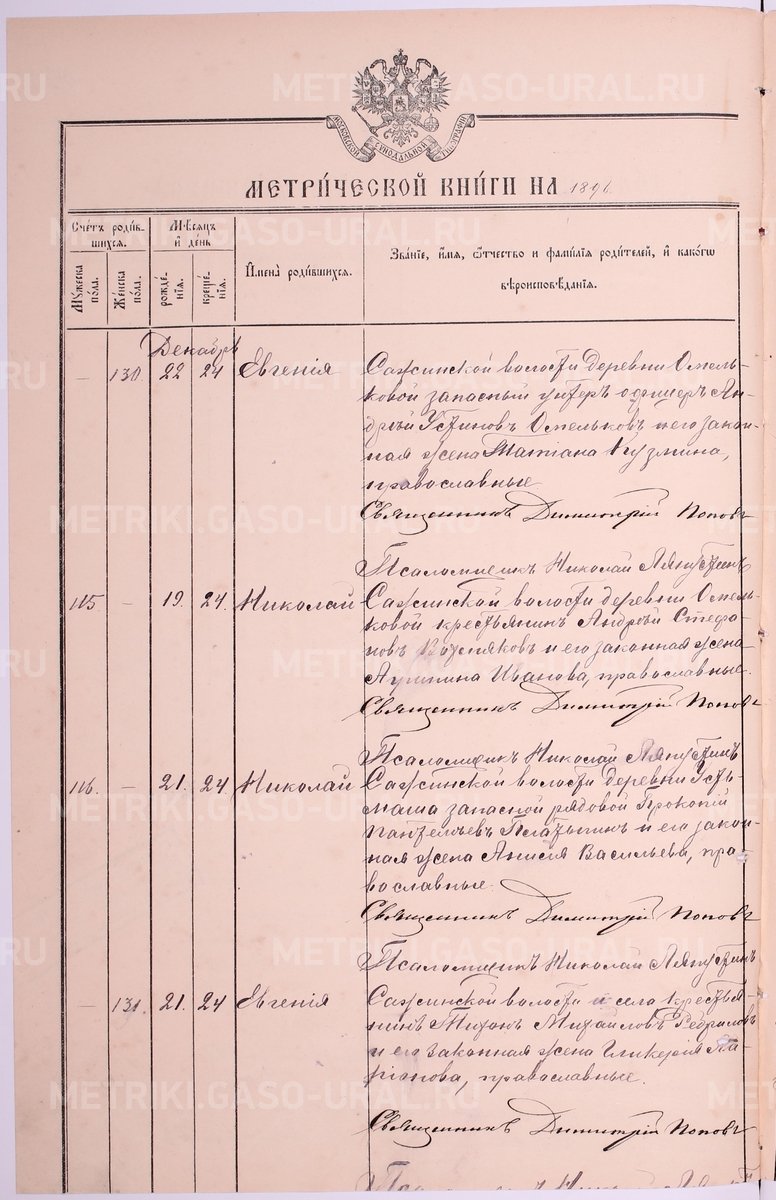 МОСКОВСКОЙ СѴНОДАЛЬНОЙ ТИПОГРАФІИ
МЕТРИ́ЧЕСКОЙ КНИ́ГИ НА 1896
Сче́тъ роди́в-
шихся.
Мѣсяцъ
и҆ день
Му́жеска по́ла.
Же́нска по́ла.
рожде́нїя.
креще́нїя.
И҆мена̀ роди́вшихся.
Зва́нїе, и҆́мя, ѻ҆́тчество и фами́лїѧ роди́телей, и҆ како́гѡ
вѣроисповѣ́данїя.
Декабрь
— 130. 22 24 Евгенія Сажинской волости деревни Омель-
ковой запасный унтеръ офицеръ Ан-
дрей Устиновъ Омельковъ и его закон-
ная жена Татіана Кузмина,
православные
Священникъ Димитрій Поповъ
Псаломщикъ Николай Ляпустинъ
115 — 19. 24. Николай Сажинской волости деревни Омель-
ковой крестьянинъ Андрей Стефа-
новъ и его законная жена
Агрипина Иванова, православные.
Священникъ Димитрій Поповъ
Псаломщикъ Николай Ляпустинъ
116. — 21. 24 Николай Сажинской волости деревни Усть-
маша запасной рядовой Прокопій
Пантелѣевъ и его закон-
ная жена Анисія Васильева, пра-
вославные.
Священникъ Димитрій Поповъ
Псаломщикъ Николай Ляпустинъ
— 131. 21. 24 Евгенія Сажинской волости и села крестья-
нинъ Тихонъ Михаиловъ
и его законная жена Гликерія Ла-
ріонова, православные.
Священникъ Димитрій Поповъ
METRIKI.GASO-URAL.RU